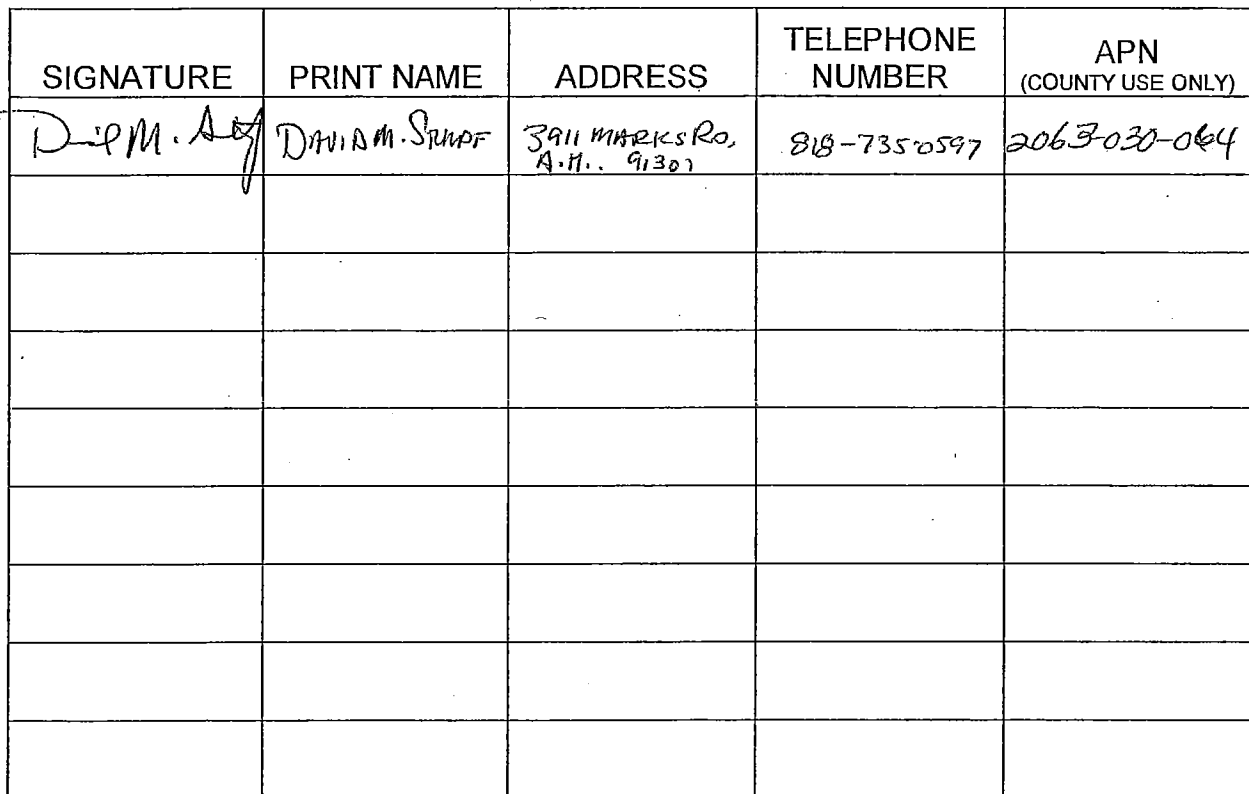 SIGNATURE PRINT NAME ADDRESS TELEPHONE NUMBER APN (COUNTY USE ONLY)
DAVID M. 3911 MARKS RD, 818-735-0597 2063-030-064
A.H.. 91301